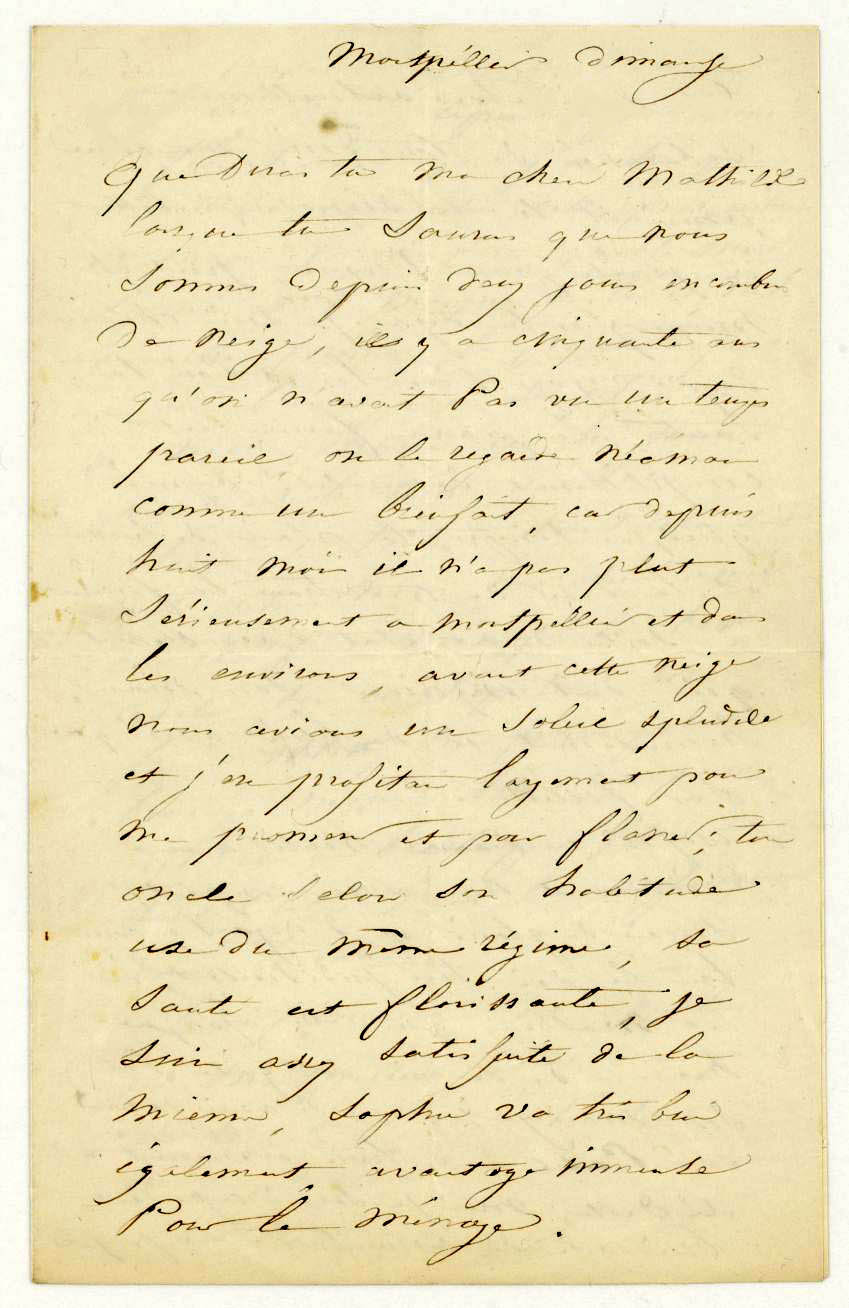 Montpéllier dimanche
Que Diras tu ma chère Mathilde
lorsque tu Sauras que nous
Sommes Depuis deux jours encombrés
De Neige, il y a cinquante ans
qu'on n'avait Pas vu un temps
pareil, on le regarde Néanmoins
comme un bienfait, car depuis
huit mois il n'a pas plut
Sérieusement a montpéllier et dans
les environs, avant cette neige
nous avions un Soleil splendide
et j'en profitais largement pour
me promener et pour flaner; ton
oncle Selon Son habitude
use du même régime, sa
Santé est florissante, je
Suis assez satisfaite de la
mienne, Sophie va très bien
également, avantage immense
Pour le ménage.